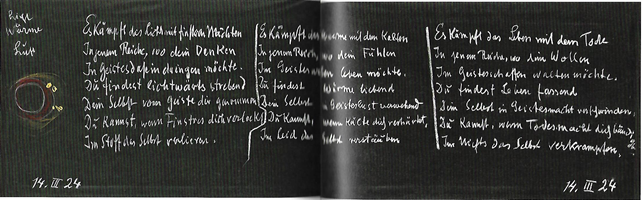 Wärme
Luft
Es kämpft das Licht mit finstren Mächten
In jenem Reiche, wo dein Denken
In Geistesdasein dringen möchte.
Du findest lichtwärts strebend
Dein Selbst vom Geiste dir genommen
Du kannst, wenn Finstres dich verlockt
Im Stoff das Selbst verlieren.
14. III 24
Es kämpft das Warme mit dem Kalten
In jenem Reiche, wo dein Fühlen
Im Geistesweben leben möchte.
Du findest Wärme liebend
Dein Selbst in Geisteslust verwehend
Du kannst, wenn Kälte dich verhärtet,
Im Leid das Selbst verstäuben
Es kämpft das Leben mit dem Tode
In jenem Reiche, wo dein Wollen
Im Geistesschaffen walten möchte.
Du findest Leben fassend
Dein Selbst in Geistesmacht verschwinden,
Du kannst, wenn Todesmacht dich
Im Nichts das Selbst verkrampfen.
14. III 24